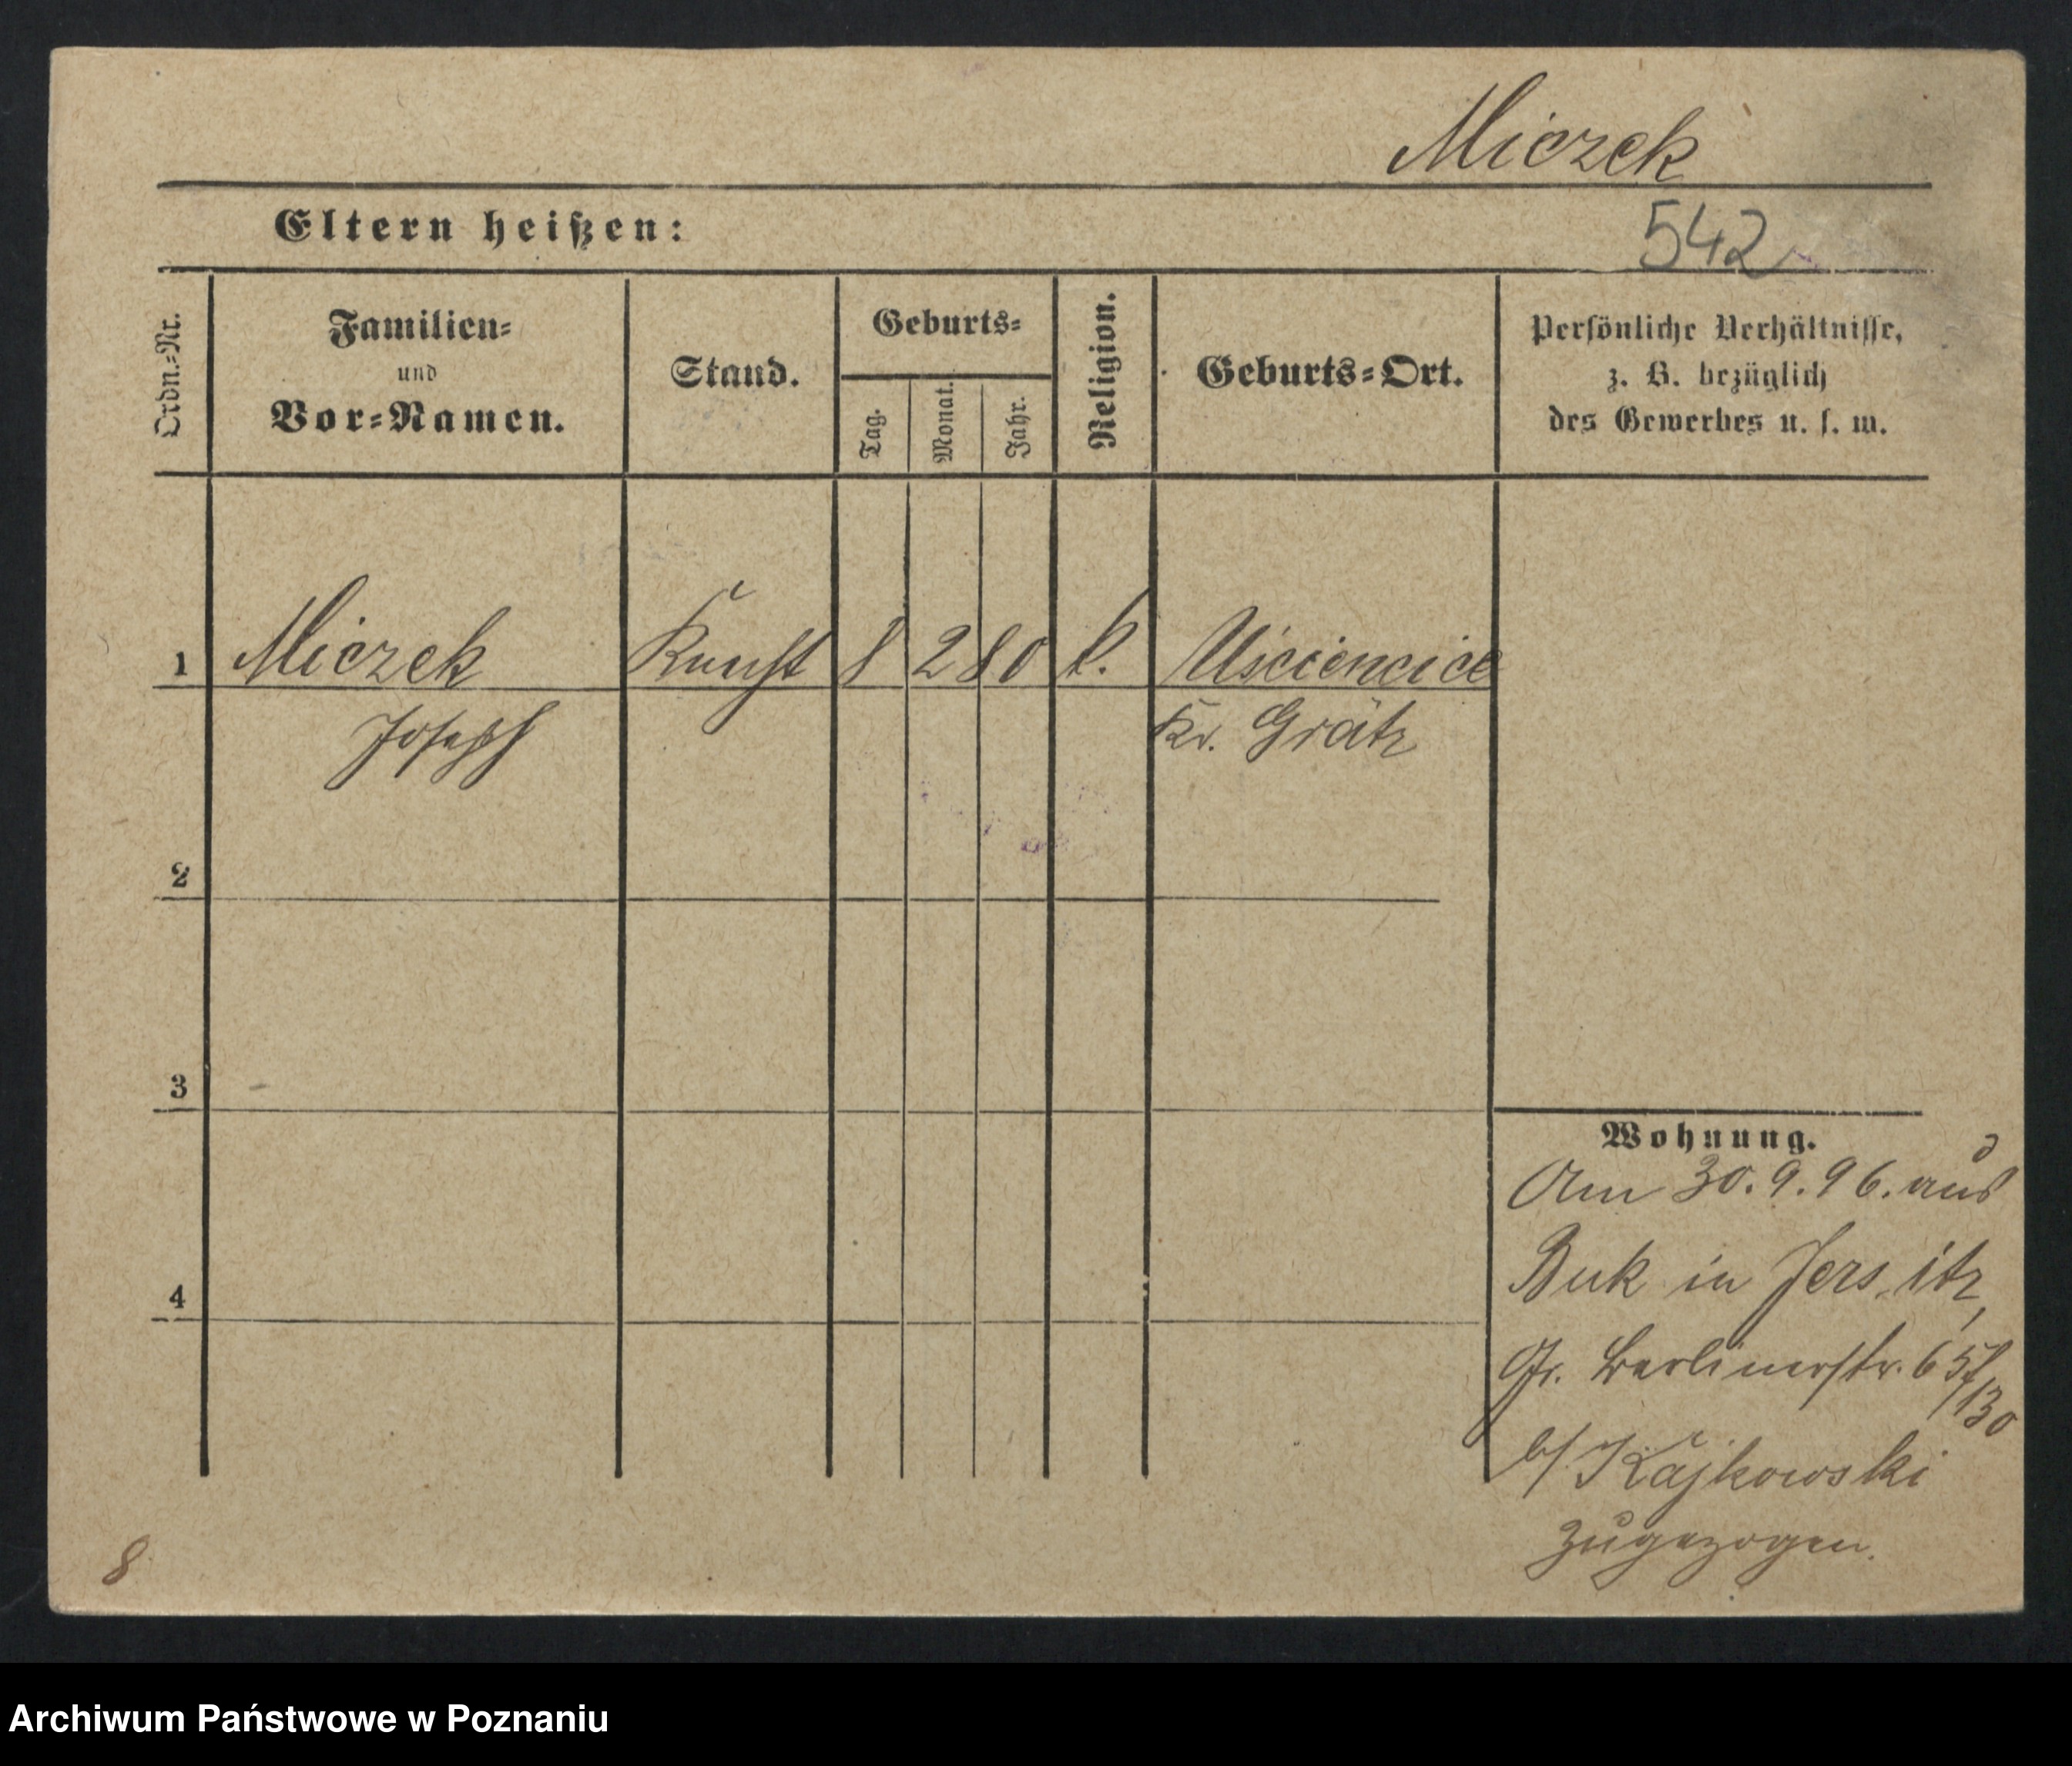 Miczek
Eltern heißen:
542
Ordn.-Nr.
Familien-
und
Vor-Namen.
Stand.
Geburts-
Tag.
Monat.
Jahr.
Religion.
Geburts-Ort.
Persönliche Verhältnisse,
z. B. bezüglich
des Gewerbes u. s. w.
1 Miczek 8 2 80 k. Uściencice
Joseph Kr. Grätz
2
3
4
Wohnung.
Am 30.9.96. aus
Buk in Jersitz,
Gr. Berlinerstr. 65
/130
b/ Kajkowski
zugezogen.
8
Archiwum Państwowe w Poznaniu